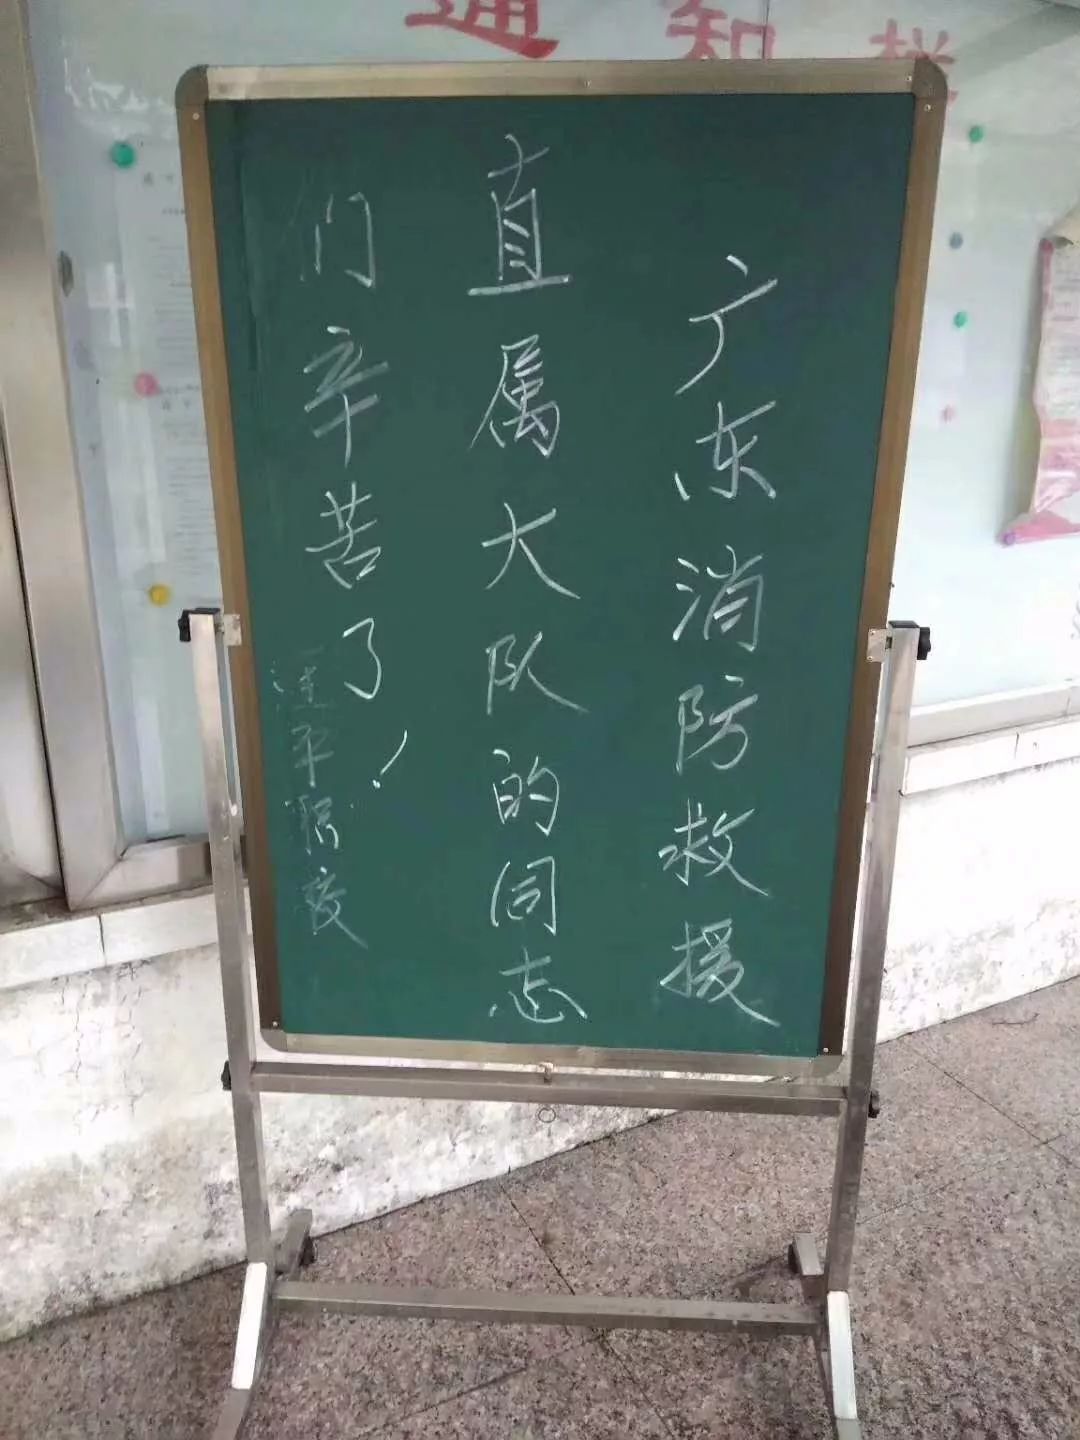 通知栏
广东消防救援
直属大队的同志
们辛苦了！
连平职校